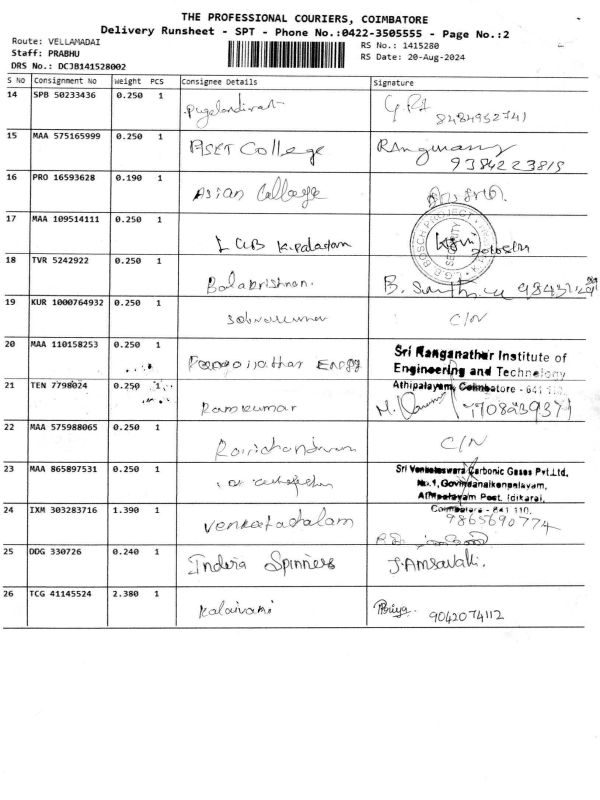 THE PROFESSIONAL COURIERS, COIMBATORE
Delivery Runsheet - SPT - Phone No.:0422-3505555 - Page No.:2
Route: VELLAMADAI
RS No.: 1415280
Staff: PRABHU
RS Date: 20-Aug-2024
DRS No.: DCJB141528002
S No Consignment No Weight PCS Consignee Details Signature
14 SPB 50233436 0.250 1
8484952741
15 MAA 575165999 0.250 1 College
9384223815
16 PRO 16593628 0.190 1 Asian College
17 MAA 109514111 0.250 1 K.Palayam
BOSCH PROJECT
SECURITY
18 TVR 5242922 0.250 1 Balakrishnan. B.
19 KUR 1000764932 0.250 1 C/N
20 MAA 110158253 0.250 1
Sri Ranganathar Institute of
Engineering and Technology
Athipalayam, Coimbatore - 641 110.
21 TEN 7798024 0.250 1 Ramkumar M.
22 MAA 575988065 0.250 1 C/N
23 MAA 865897531 0.250 1
Sri Venkateswara Carbonic Gases Pvt.Ltd.
No.1, Govindanaikenpalayam,
Athipalayam Post, Idikarai,
Coimbatore - 641 110.
24 IXM 303283716 1.390 1 Venkatachalam 9865690774
25 DDG 330726 0.240 1 Indria Spinners J.Amsavalli.
26 TCG 41145524 2.380 1 Kalaivani Priya.
9042074112